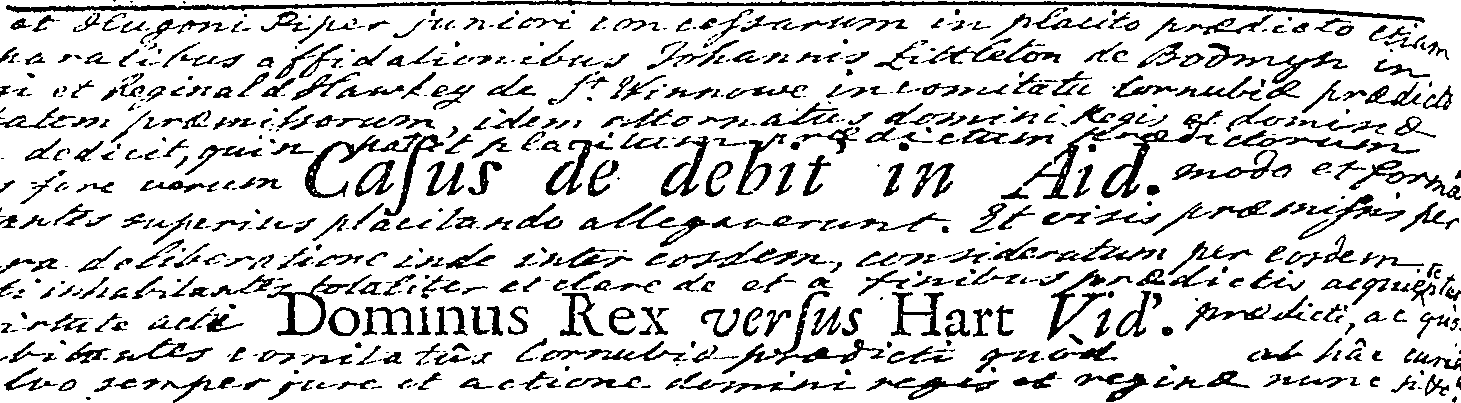 et Hugoni Piper juniori concessarum in placito prædicto etiam
naralibus affidationibus Johannis Littleton de Bodmyn in
ni et Reginald Hawkey de St. Winnowe in comitatu Cornubiæ prædicto
tatem præmissorum, idem attornatus domini Regis et dominæ
dedicit, quin placitum prædictum prædictorum
s fore verum Caſus de debit' in Aid. modo et formâ
tantes superius placitando allegaverunt. Et visis præmissis per
ra deliberatione inde inter eosdem, consideratum per eosdem
ti inhabitantes totaliter et clare de et a finibus prædictis acquietetur
irtute acti Dominus Rex verſus Hart Vid'. prædicti, ac quis
bitantes comitatûs Cornubiæ prædicti quòd ab hâc curiâ
lvo semper jure et actione domini regis et reginæ nunc si &c.